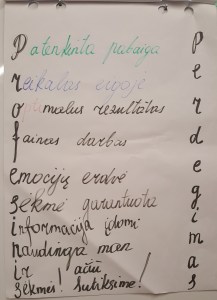 Patenkinta pabaiga
reikalas eigoje
o malus rezultatas
fainas darbas
emocijų erdvė
sėkmė garantuota
informacija įdomi
naudinga man
ir ačiū
sėkmės! Susitiksime!
Perdegimas